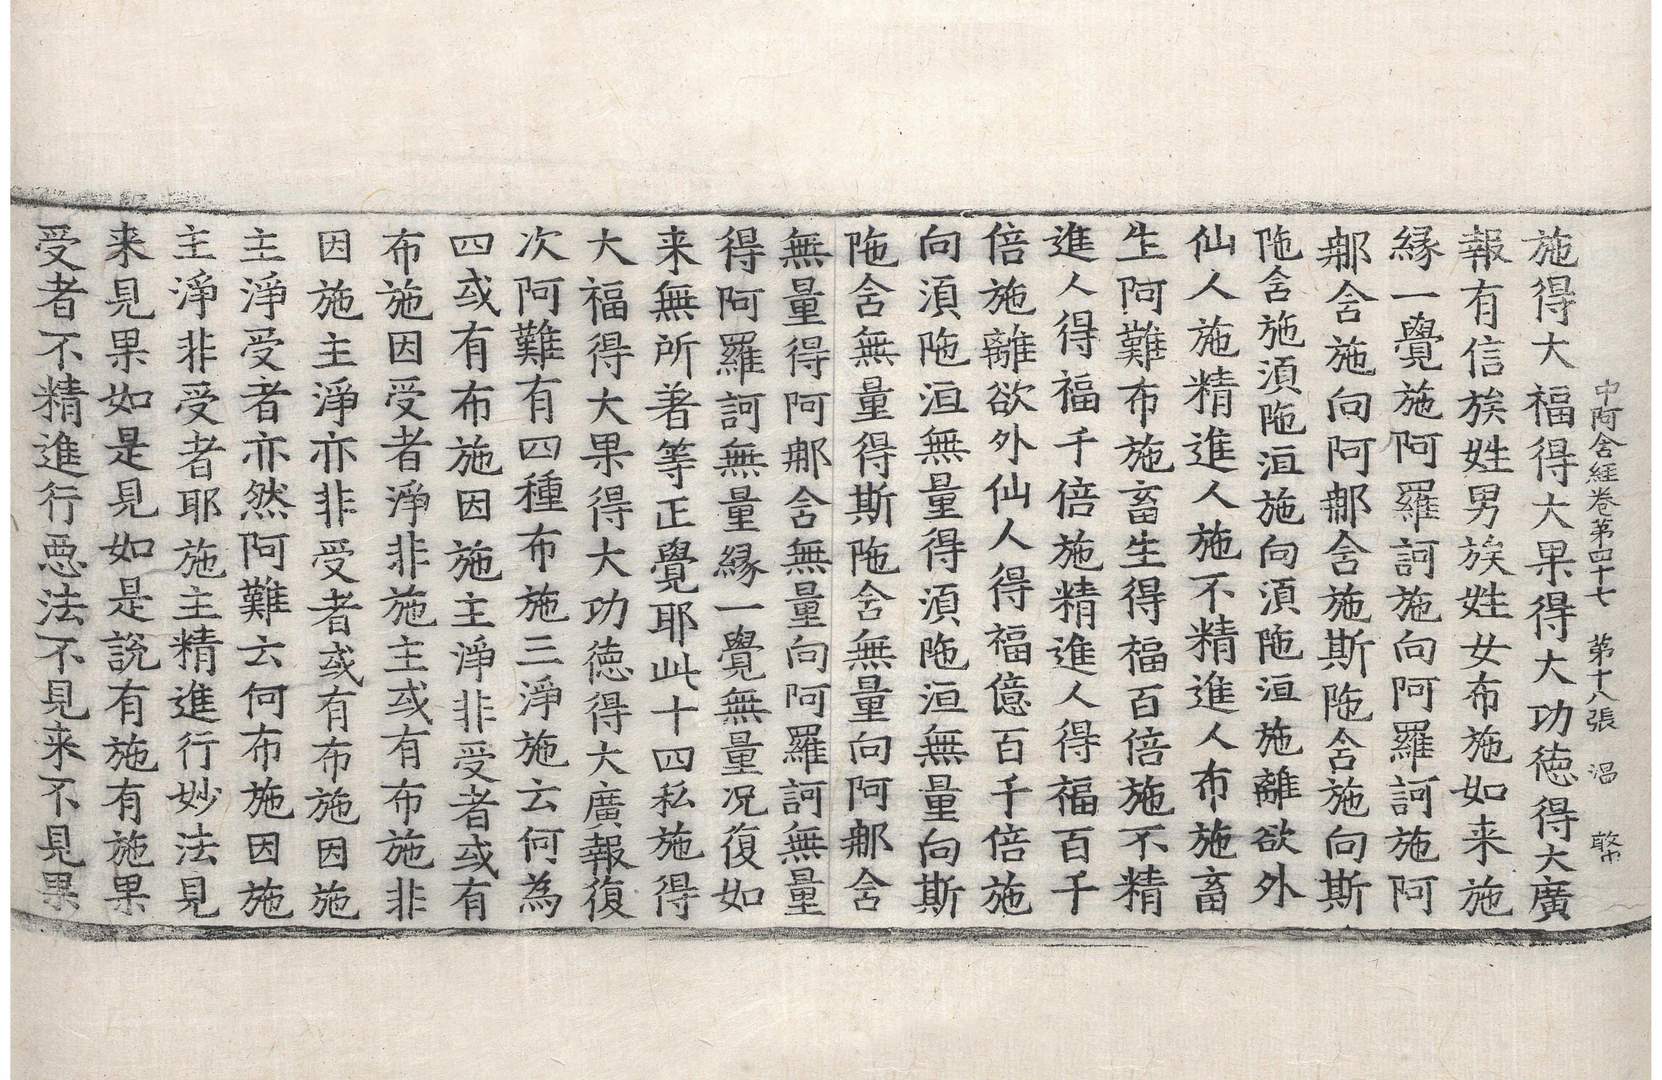 中阿含経卷第四十七　第十八張　溫
施得大福得大果得大功徳得大廣
報有信族姓男族姓女布施如来施
縁一覺施阿羅訶施向阿羅訶施阿
那含施向阿那含施斯陁含施向斯
陁含施湏陁洹施向湏陁洹施離欲外
仙人施精進人施不精進人布施畜
生阿難布施畜生得福百倍施不精
進人得福千倍施精進人得福百千
倍施離欲外仙人得福億百千倍施
向湏陁洹無量得湏陁洹無量向斯
陁含無量得斯陁含無量向阿那含
無量得阿那含無量向阿羅訶無量
得阿羅訶無量縁一覺無量况復如
来無所著等正覺耶此十四私施得
大福得大果得大功徳得大廣報復
次阿難有四種布施三淨施云何為
四或有布施因施主淨非受者或有
布施因受者淨非施主或有布施非
因施主淨亦非受者或有布施因施
主淨受者亦然阿難云何布施因施
主淨非受者耶施主精進行妙法見
来見果如是見如是說有施有施果
受者不精進行惡法不見来不見果